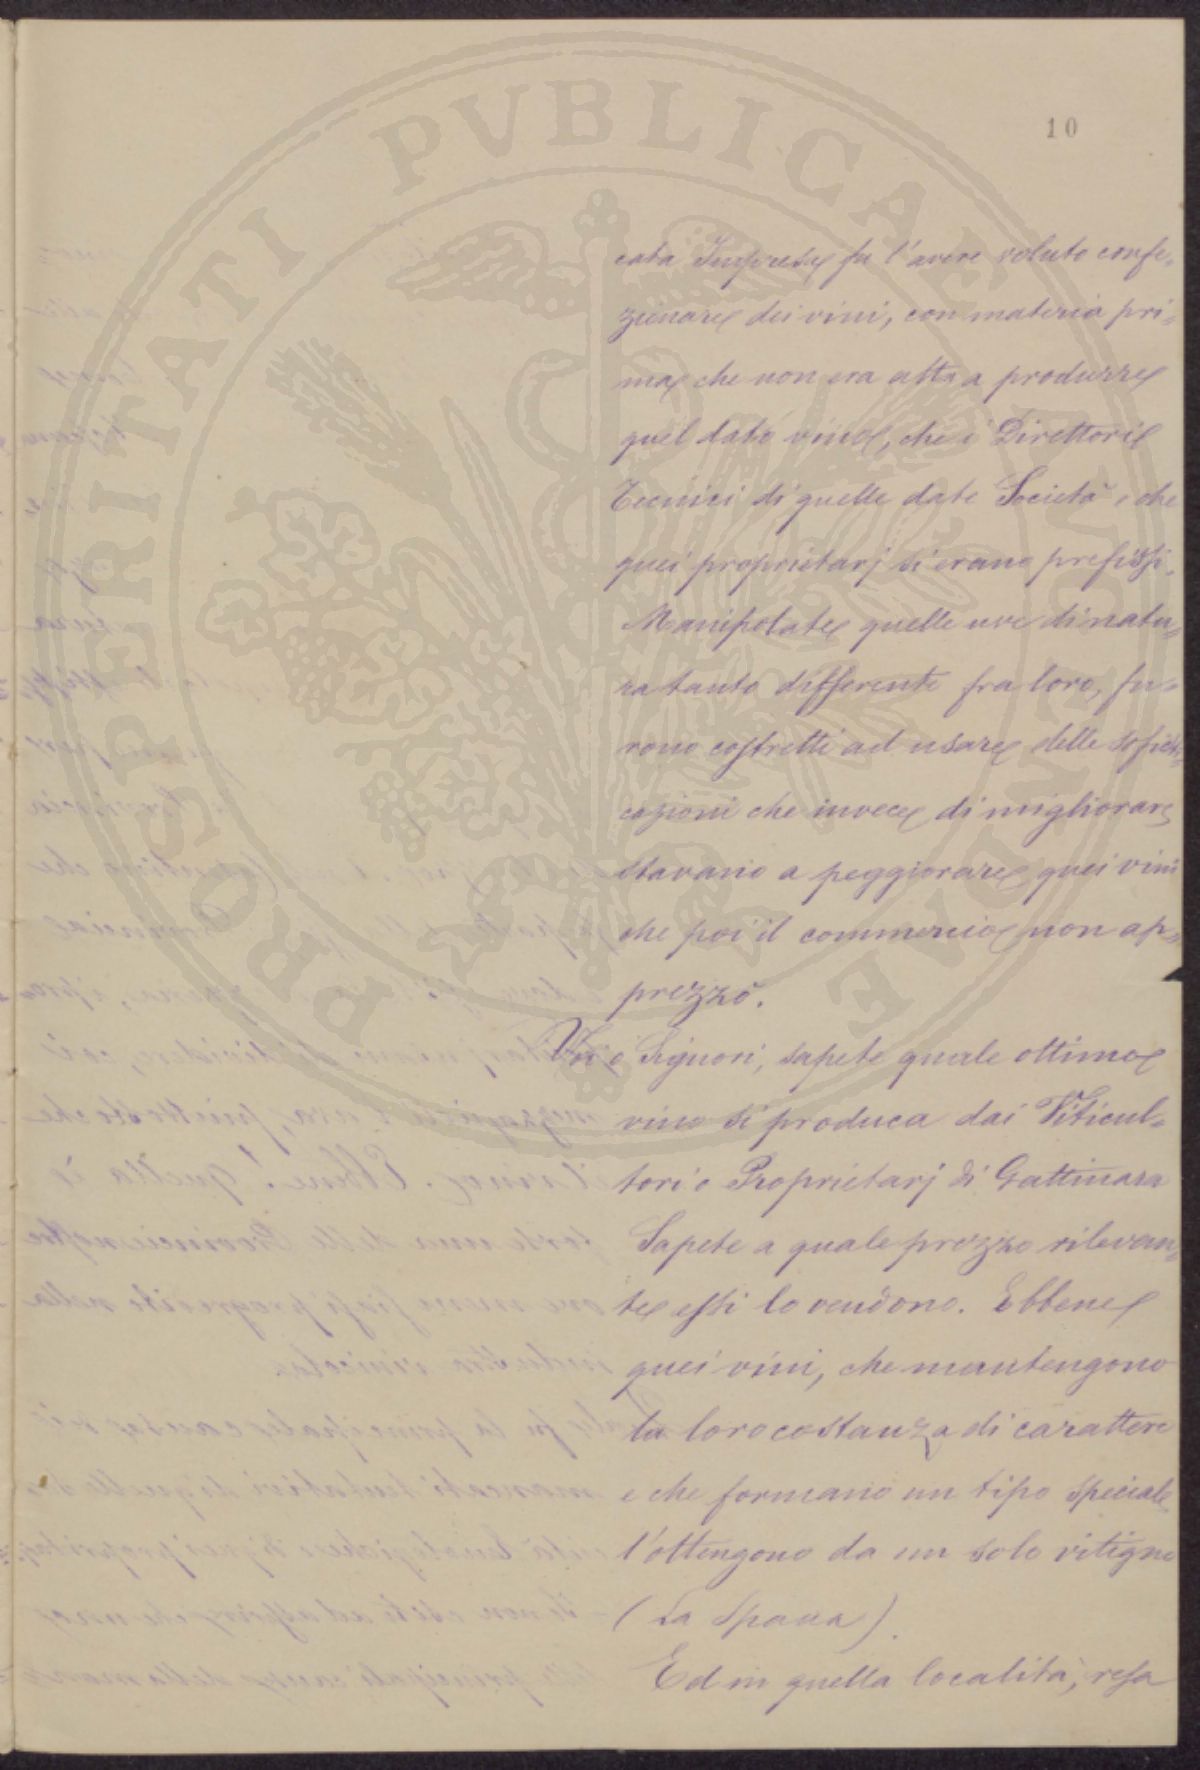 PROSPERITATI PVBLICAE
10
cata Imprese fu l'avere voluto confe-
zionare dei vini, con materia pri-
ma che non era atta a produrre
quel dato vino, che i Direttori
Tecnici di quelle date Società e che
quei proprietarj si erano prefissi.
Manipolate quelle uve di natu-
ra tanto differente fra loro, fu-
rono costretti ad usare delle sofisti-
cazioni che invece di migliorare
stavano a peggiorare quei vini
che poi il commercio non ap-
prezzò.
Voi o Signori, sapete quale ottimo
vino si produca dai Viticul-
tori o Proprietarj di Gattinara
Sapete a quale prezzo rilevan-
te essi lo vendono. Ebbene
quei vini, che mantengono
la loro costanza di carattere
e che formano un tipo speciale
l'ottengono da un solo vitigno
(La Spana).
Ed in quella località, resa